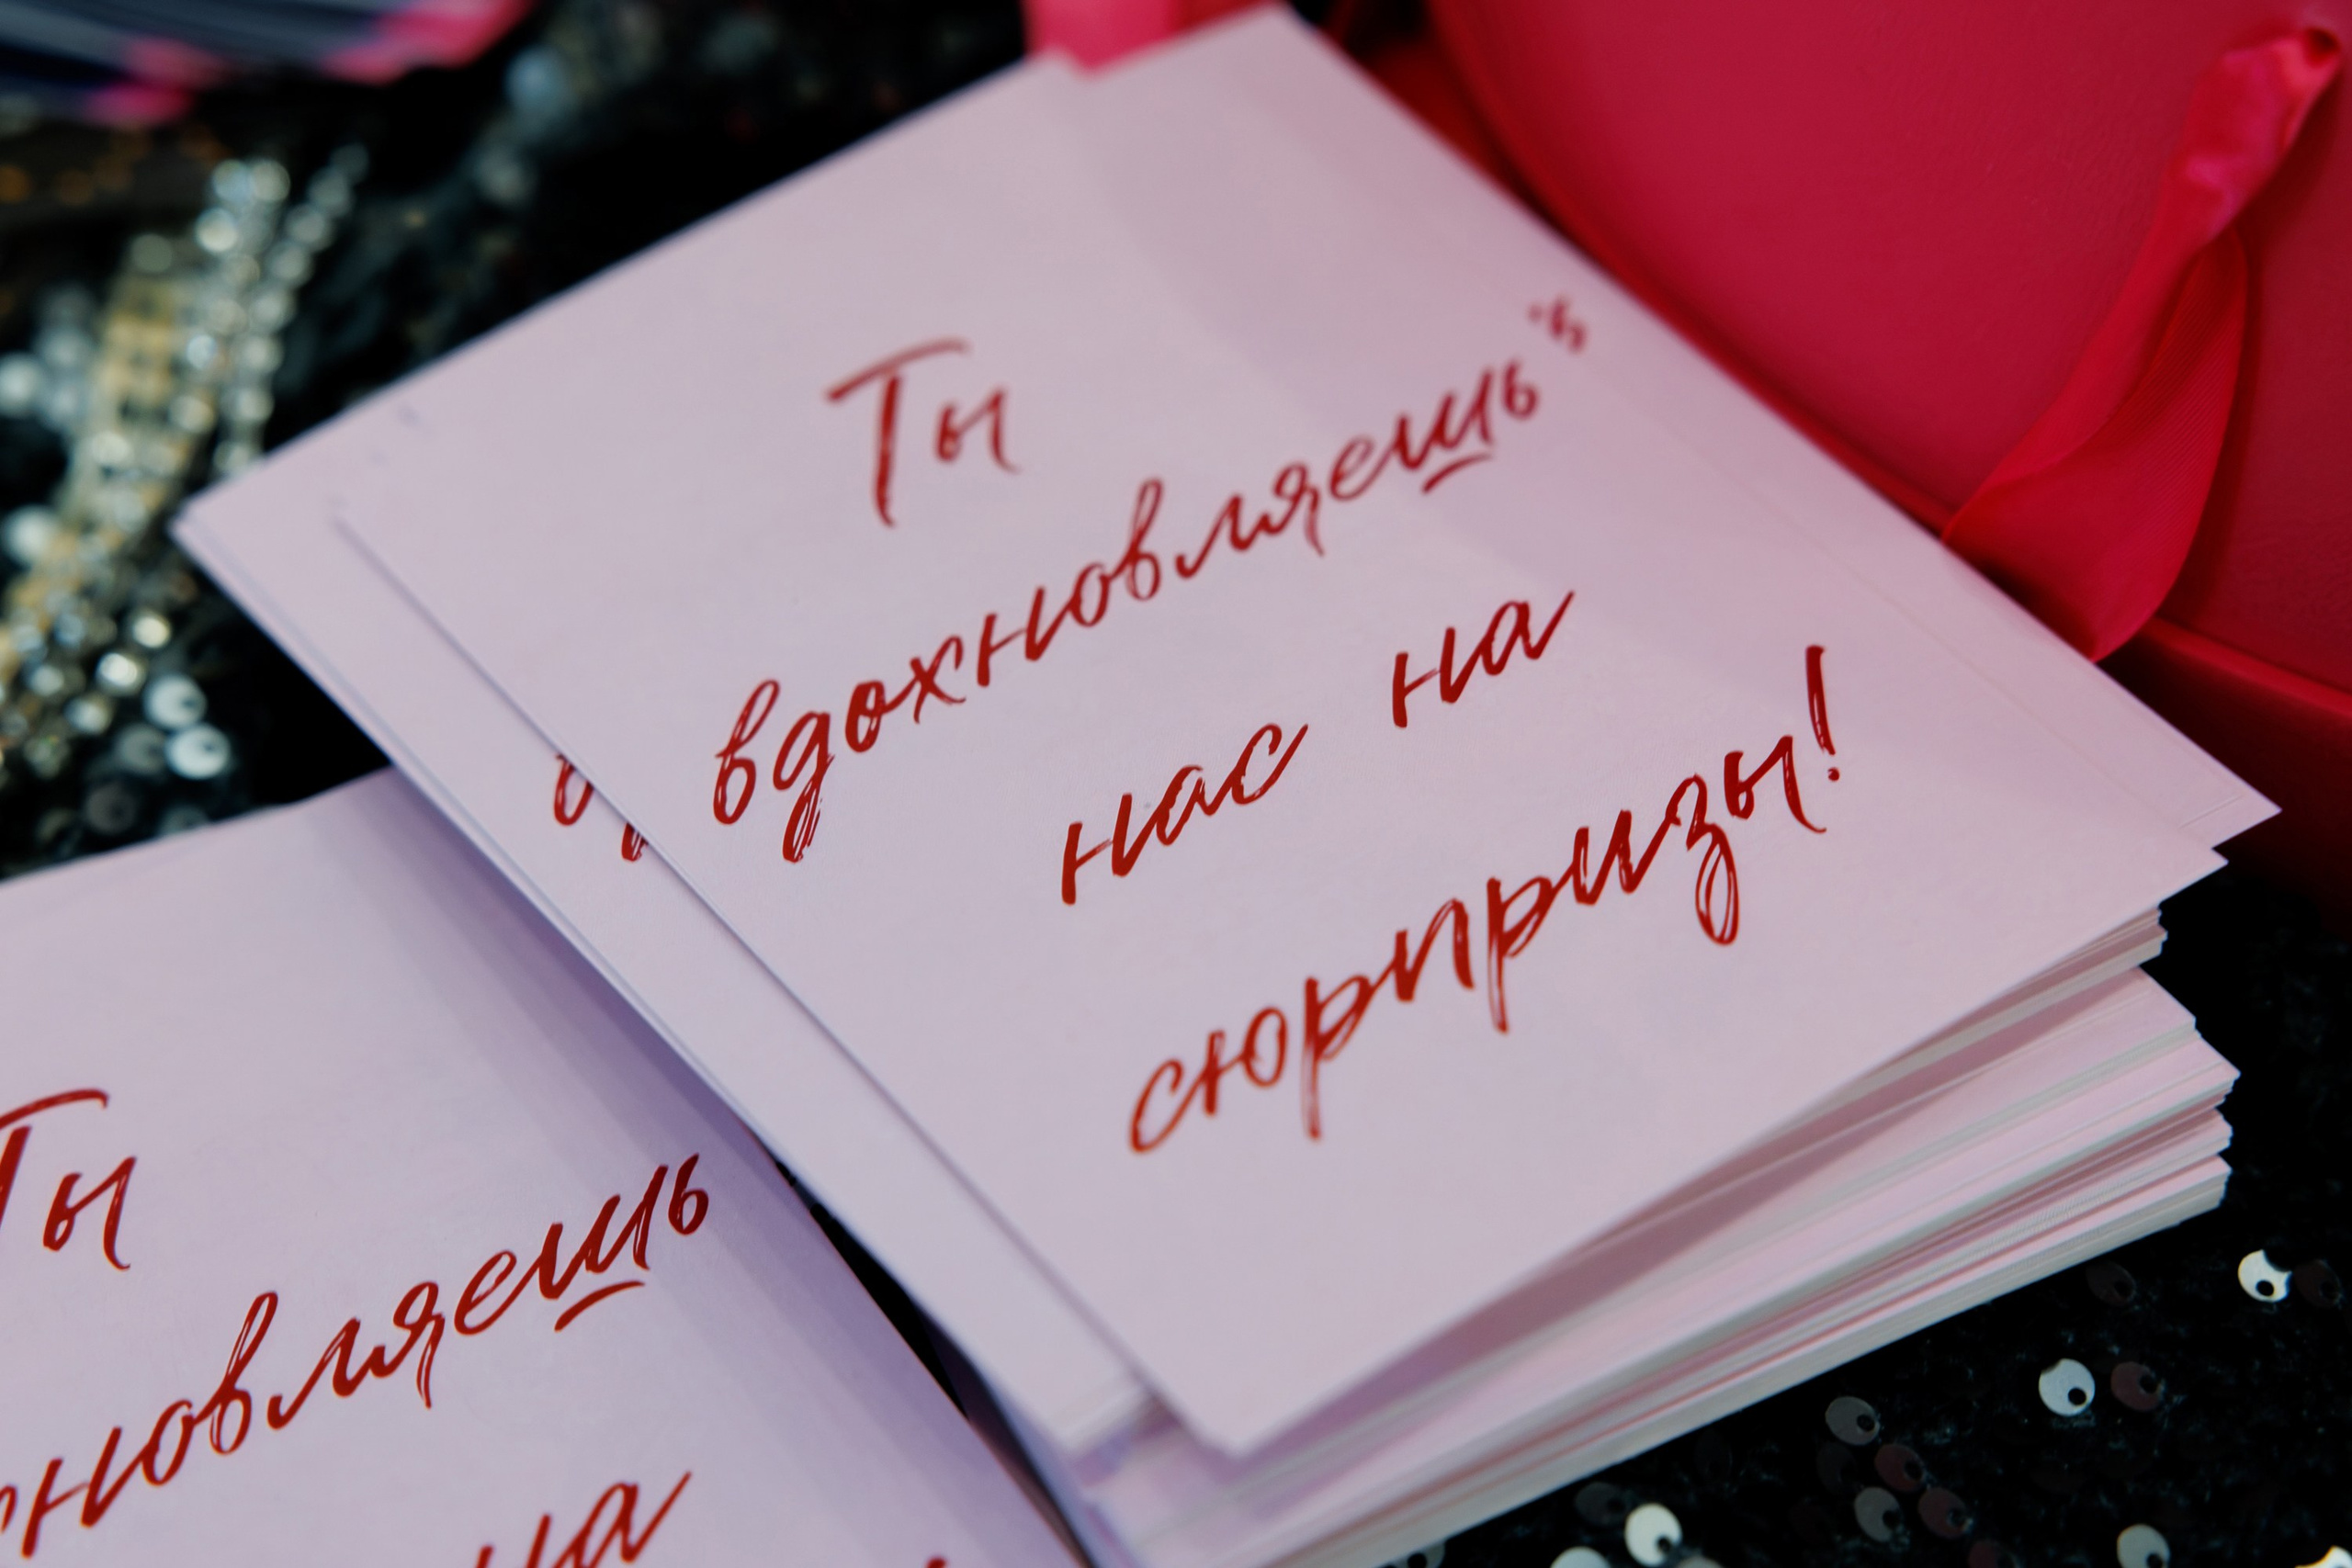 Ты
вдохновляешь
нас на
сюрпризы!
Ты
новляешь
на